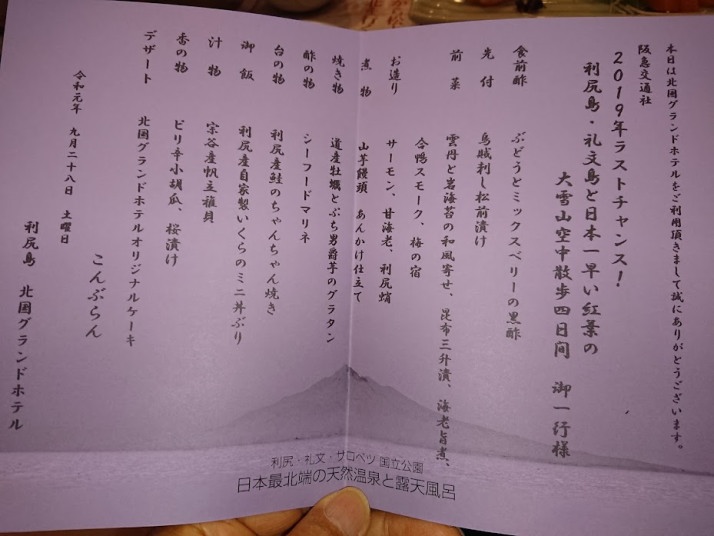 本日は北国グランドホテルをご利用頂きまして誠にありがとうございます。
阪急交通社
2019年ラストチャンス!
利尻島・礼文島と日本一早い紅葉の
大雪山空中散歩四日間 御一行様
食前酢 ぶどうとミックスベリーの黒酢
先付 烏賊刺し松前漬け
前菜 雲丹と岩海苔の和風寄せ、昆布三升漬、海老旨煮、
合鴨スモーク、梅の宿
お造り サーモン、甘海老、利尻蛸
煮物 山芋饅頭 あんかけ仕立て
焼き物 道産牡蠣とぶち男爵芋のグラタン
酢の物 シーフードマリネ
台の物 利尻産鮭のちゃんちゃん焼き
御飯 利尻産自家製いくらのミニ丼ぶり
汁物 宗谷産帆立稚貝
香の物 ピリ辛小胡瓜、桜漬け
デザート 北国グランドホテルオリジナルケーキ
令和元年 九月二十八日 土曜日
こんぶらん
利尻島 北国グランドホテル
利尻・礼文・サロベツ 国立公園
日本最北端の天然温泉と露天風呂